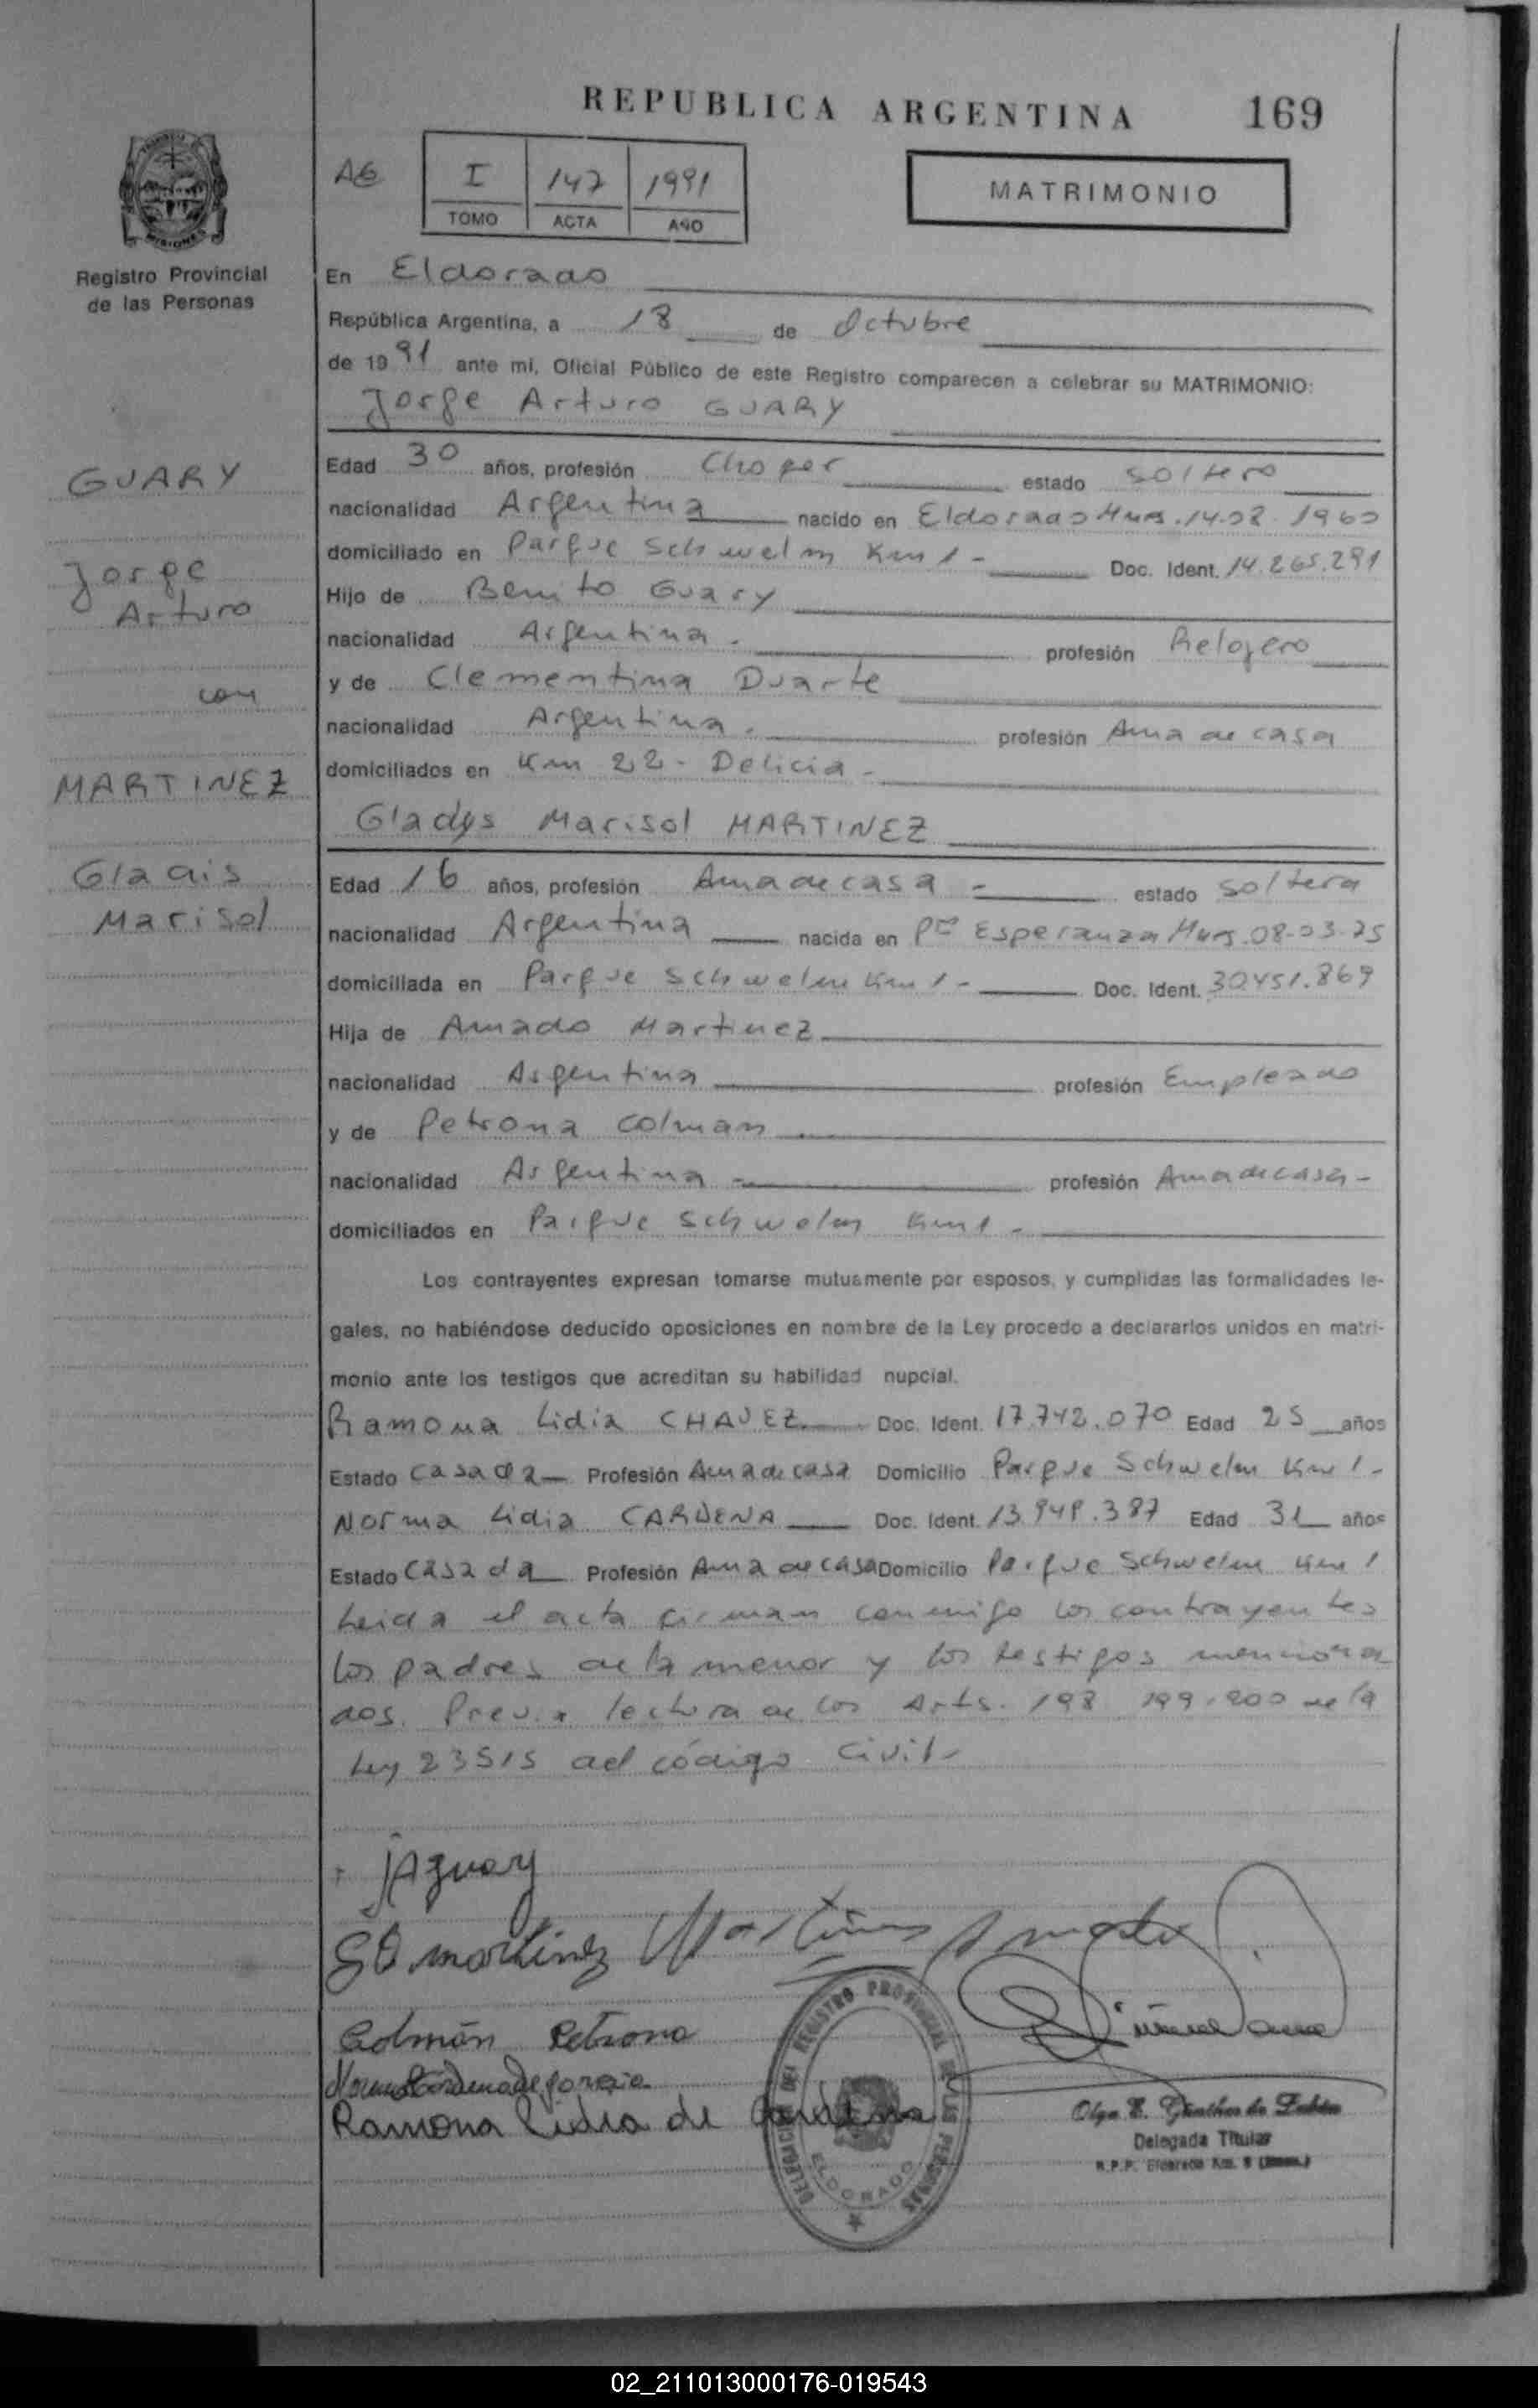 REPUBLICA ARGENTINA 169
AG I 147 1991
TOMO ACTA AÑO
MATRIMONIO
MISIONES
Registro Provincial
de las Personas
En Eldorado
República Argentina, a 18 de Octubre
de 1991 ante mi, Oficial Público de este Registro comparecen a celebrar su MATRIMONIO:
Jorge Arturo GUARY
Edad 30 años, profesión Chofer estado soltero
nacionalidad Argentina nacido en Eldorado Mnes. 1960
domiciliado en Parque Schwelm Km 1 - Doc. Ident. 14.265.291
Hijo de Benito Guary
nacionalidad Argentina. profesión Relojero
y de Clementina Duarte
nacionalidad Argentina. profesión Ama de casa
domiciliados en Km 22 - Delicia -
Gladys Marisol MARTINEZ
Edad 16 años, profesión Ama de casa - estado soltera
nacionalidad Argentina nacida en Pto Esperanza Mnes. 08-03-75
domiciliada en Parque Schwelm Km 1 - Doc. Ident. 30451.869
Hija de Amado Martinez
nacionalidad Argentina profesión Empleado
y de Petrona Colman
nacionalidad Argentina - profesión Ama de casa -
domiciliados en Parque Schwelm Km 1 -
Los contrayentes expresan tomarse mutuamente por esposos, y cumplidas las formalidades le-
gales, no habiéndose deducido oposiciones en nombre de la Ley procedo a declararlos unidos en matri-
monio ante los testigos que acreditan su habilidad nupcial.
Ramona Lidia CHAVEZ Doc. Ident. 17.742.070 Edad 25 años
Estado casada Profesión Ama de casa Domicilio Parque Schwelm Km 1 -
Norma Lidia CARDENA Doc. Ident. 13.948.387 Edad 31 años
Estado casada Profesión Ama de casa Domicilio Parque Schwelm Km 1
Leida el acta firman conmigo los contrayentes
los padres de la menor y los testigos menciona
dos. Previa lectura de los Arts. 198 199-200 de la
Ley 23515 del código Civil-
GUARY
Jorge
Arturo
con
MARTINEZ
Gladis
Marisol
JAguary
GM Martinez Martinez Amado
Colmán Petrona
Norma Cardena de
Ramona Lidia de Cardena
DELEGACION DEL REGISTRO PROVINCIAL DE LAS PERSONAS
ELDORADO
Olga E. Günther de
Delegada Titular
R.P.P. Eldorado Km. 9 (Mnes.)
02_211013000176-019543